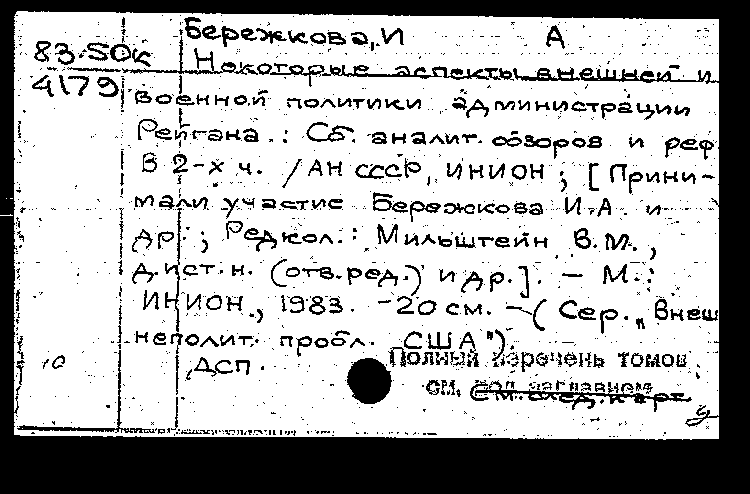 Бережкова, И А
83-5ОК
Некоторые аспекты внешней и
4179
военной политики администрации
Рейгана.: Сб. аналит. обзоров и реф
В 2-х ч. /АН СССР, ИНИОН; [Прини-
мали участие Бережкова И.А. и
др.; Редкол.: Мильштейн В.М.,
д.ист.н. (отв.ред.) и др.]. – М.:
ИНИОН, 1983. –20 см. –(Сер. „Внеш
неполит. пробл. США").
10 ДСП.
Полный перечень томов
см. под заглавием
См. след. карт.
У